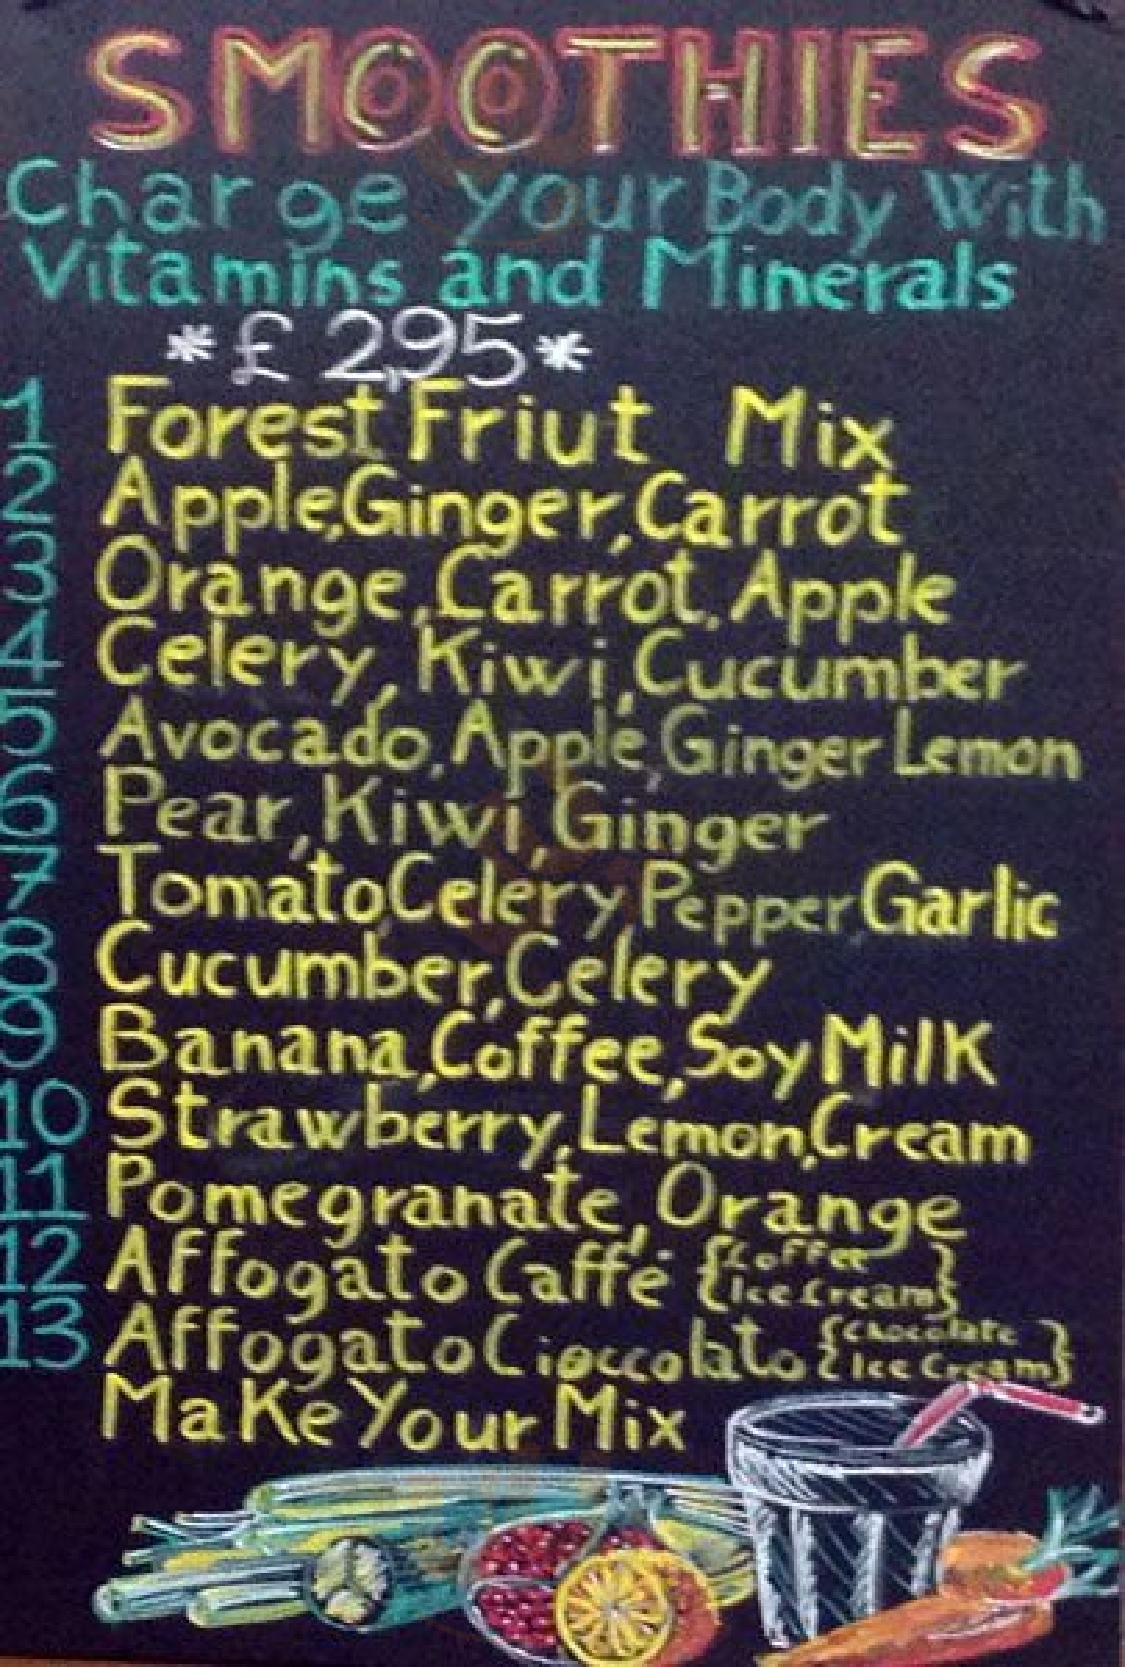 SMOOTHIES
Charge your Body With
Vitamins and Minerals
*£2,95*
1 Forest Friut Mix
2 Apple,Ginger,Carrot
3 Orange,Carrot,Apple
4 Celery,Kiwi,Cucumber
5 Avocado,Apple,Ginger Lemon
6 Pear,Kiwi,Ginger
7 Tomato,Celery,Pepper,Garlic
8 Cucumber,Celery
9 Banana,Coffee,Soy Milk
10 Strawberry,Lemon,Cream
11 Pomegranate,Orange
12 Affogato Caffé {Coffee Ice Cream}
13 Affogato Cioccolato {Chocolate Ice Cream}
Make Your Mix